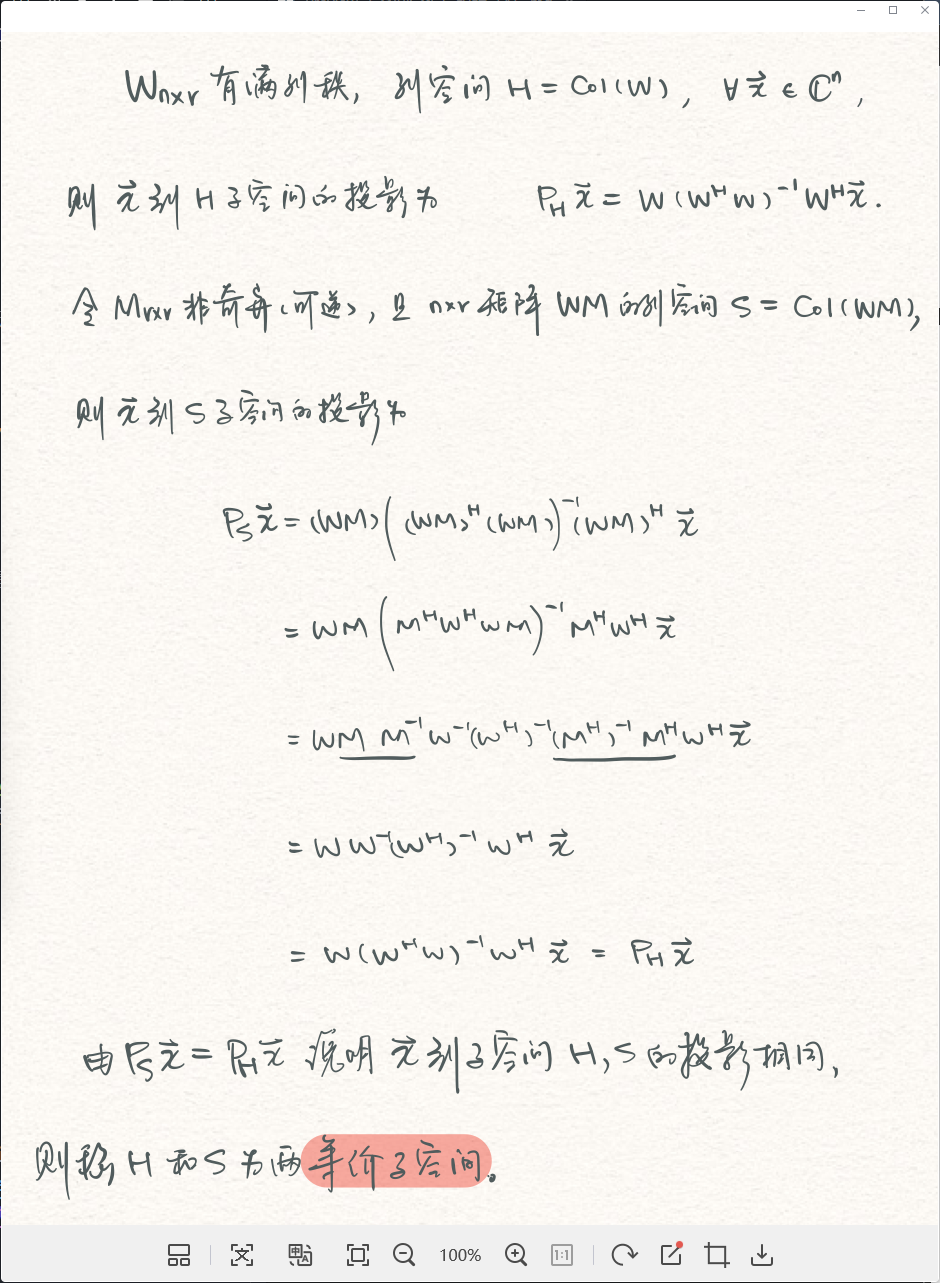 W_{n×r} 有满列秩, 列空间 H = Col(W), ∀ x⃗ ∈ ℂⁿ,
则 x⃗ 到 H 子空间的投影为 P_H x⃗ = W (W^H W)^{-1} W^H x⃗.
令 M_{r×r} 非奇异(可逆), 且 n×r 矩阵 WM 的列空间 S = Col(WM),
则 x⃗ 到 S 子空间的投影为
P_S x⃗ = (WM) ( (WM)^H (WM) )^{-1} (WM)^H x⃗
= WM ( M^H W^H W M )^{-1} M^H W^H x⃗
= W M M^{-1} W^{-1} (W^H)^{-1} (M^H)^{-1} M^H W^H x⃗
= W W^{-1} (W^H)^{-1} W^H x⃗
= W (W^H W)^{-1} W^H x⃗ = P_H x⃗
由 P_S x⃗ = P_H x⃗ 说明 x⃗ 到子空间 H, S 的投影相同,
则称 H 和 S 为两等价子空间。
100%
1:1